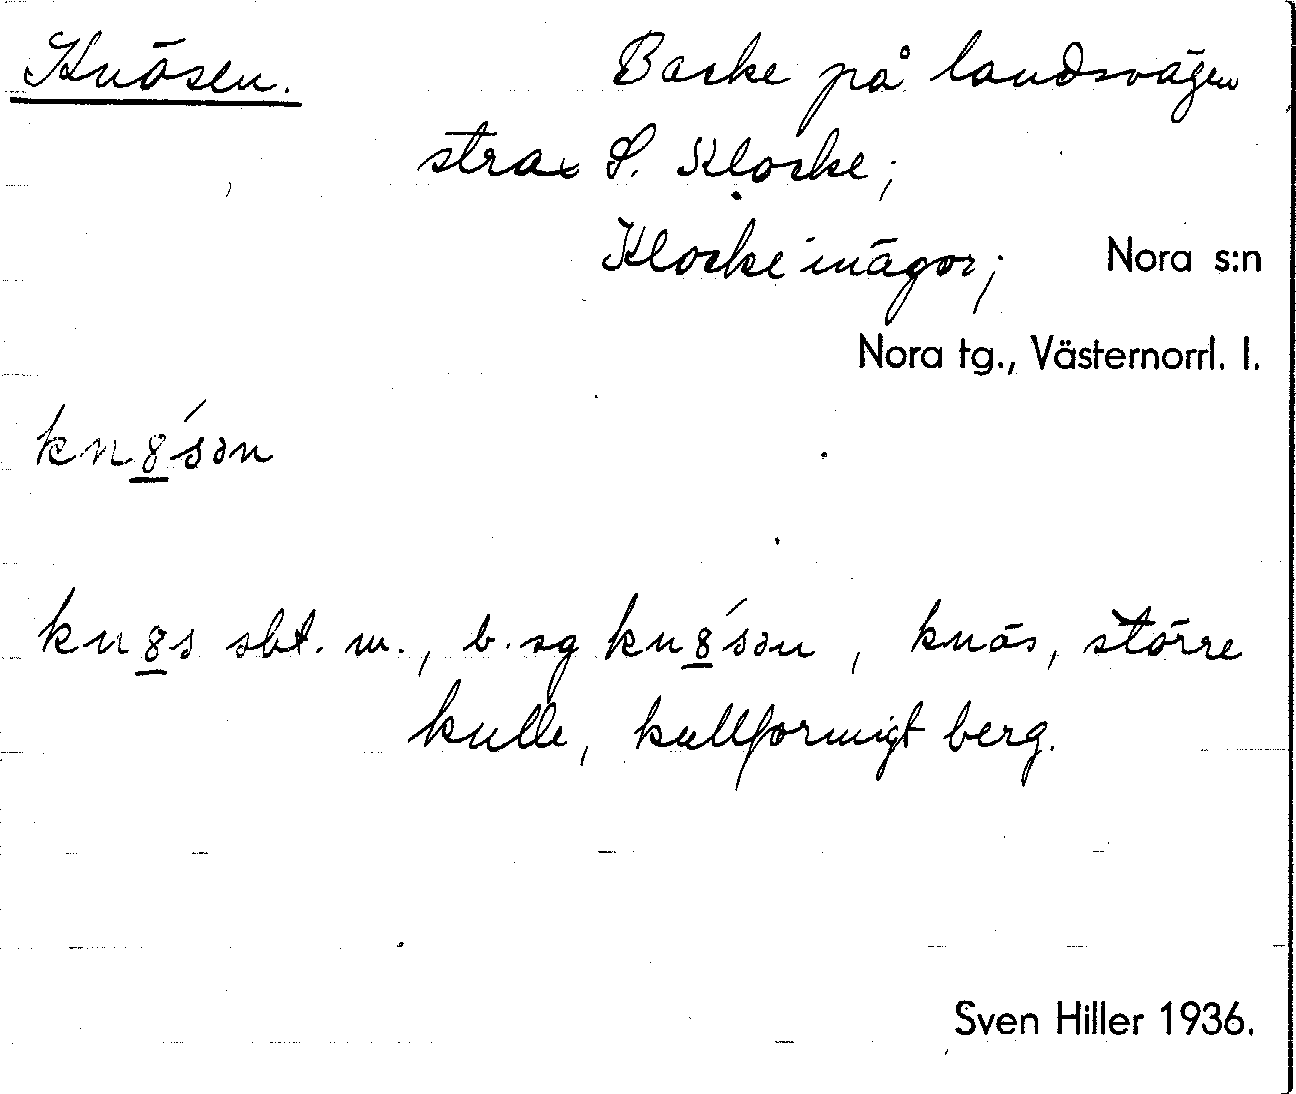 Knösen. Backe på landsvägen
strax S. Klocke;
Klocke inägor; Nora s:n
Nora tg., Västernorrl. l.
kn8́sən
kn8s sbt. m., b. sg kn8́sən, knös, större
kulle, kullformigt berg.
Sven Hiller 1936.